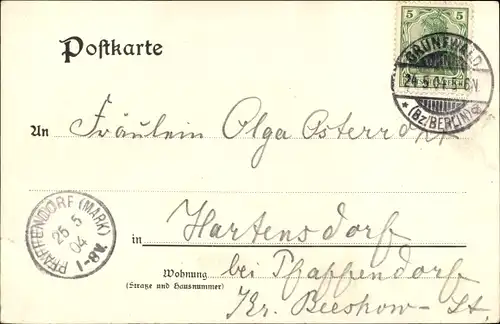 Postkarte
5 5
GRUNEWALD
24.5.04. 5-6N.
* (Bz. BERLIN) a
An Fräulein Olga Osterroht
PFAFFENDORF (MARK)
25 5
04
1-8V.
in Hartensdorf
Wohnung
(Straße und Hausnummer)
bei Pfaffendorf
Kr. Beeskow-St.